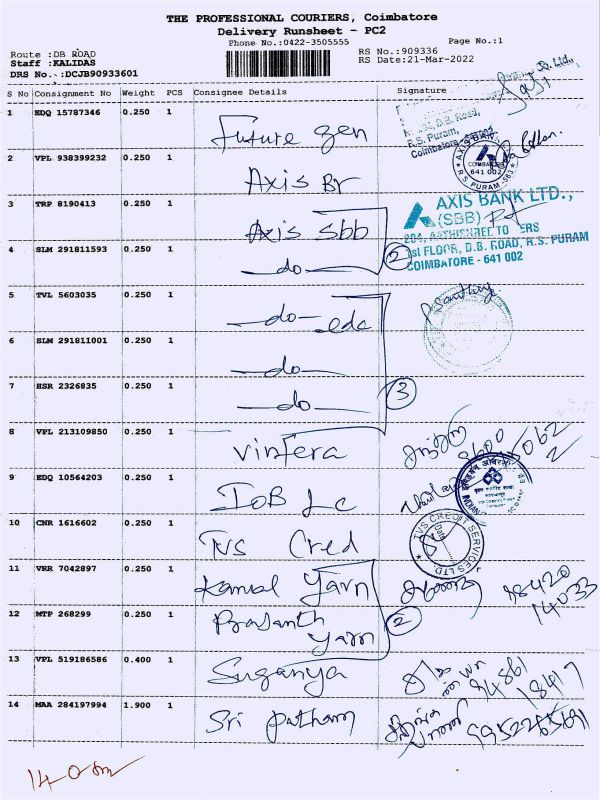 THE PROFESSIONAL COURIERS, Coimbatore
Delivery Runsheet - PC2
Phone No.:0422-3505555
Page No.:1
Route :DB ROAD
RS No.:909336
Staff :KALIDAS
RS Date:21-Mar-2022
DRS No.:DCJB90933601
S No Consignment No Weight PCS Consignee Details Signature
1 EDQ 15787346 0.250 1 Future gen
R.S. Puram,
Coimbatore
2 VPL 938399232 0.250 1 Axis Br
AXIS BANK
COIMBATORE
641 002
R.S. PURAM
3 TRP 8190413 0.250 1 Axis sbb
AXIS BANK LTD.,
(SBB)
204, AATHISHREE TO ERS
1st FLOOR, D.B. ROAD, R.S. PURAM
COIMBATORE - 641 002
4 SLM 291811593 0.250 1 —do—
2
5 TVL 5603035 0.250 1 —do— edc
6 SLM 291811001 0.250 1 —do—
7 HSR 2326835 0.250 1 —do—
3
8 VPL 213109850 0.250 1 Vinfera
9 EDQ 10564203 0.250 1 IOB Lc
10 CNR 1616602 0.250 1 TVS Cred
TVS CREDIT SERVICES LTD
11 VRR 7042897 0.250 1 Kamal Yarn
98420
14033
12 MTP 268299 0.250 1 Prasanth
Yarn
2
13 VPL 519186586 0.400 1 Suganya
94861
18417
14 MAA 284197994 1.900 1 Sri Patham